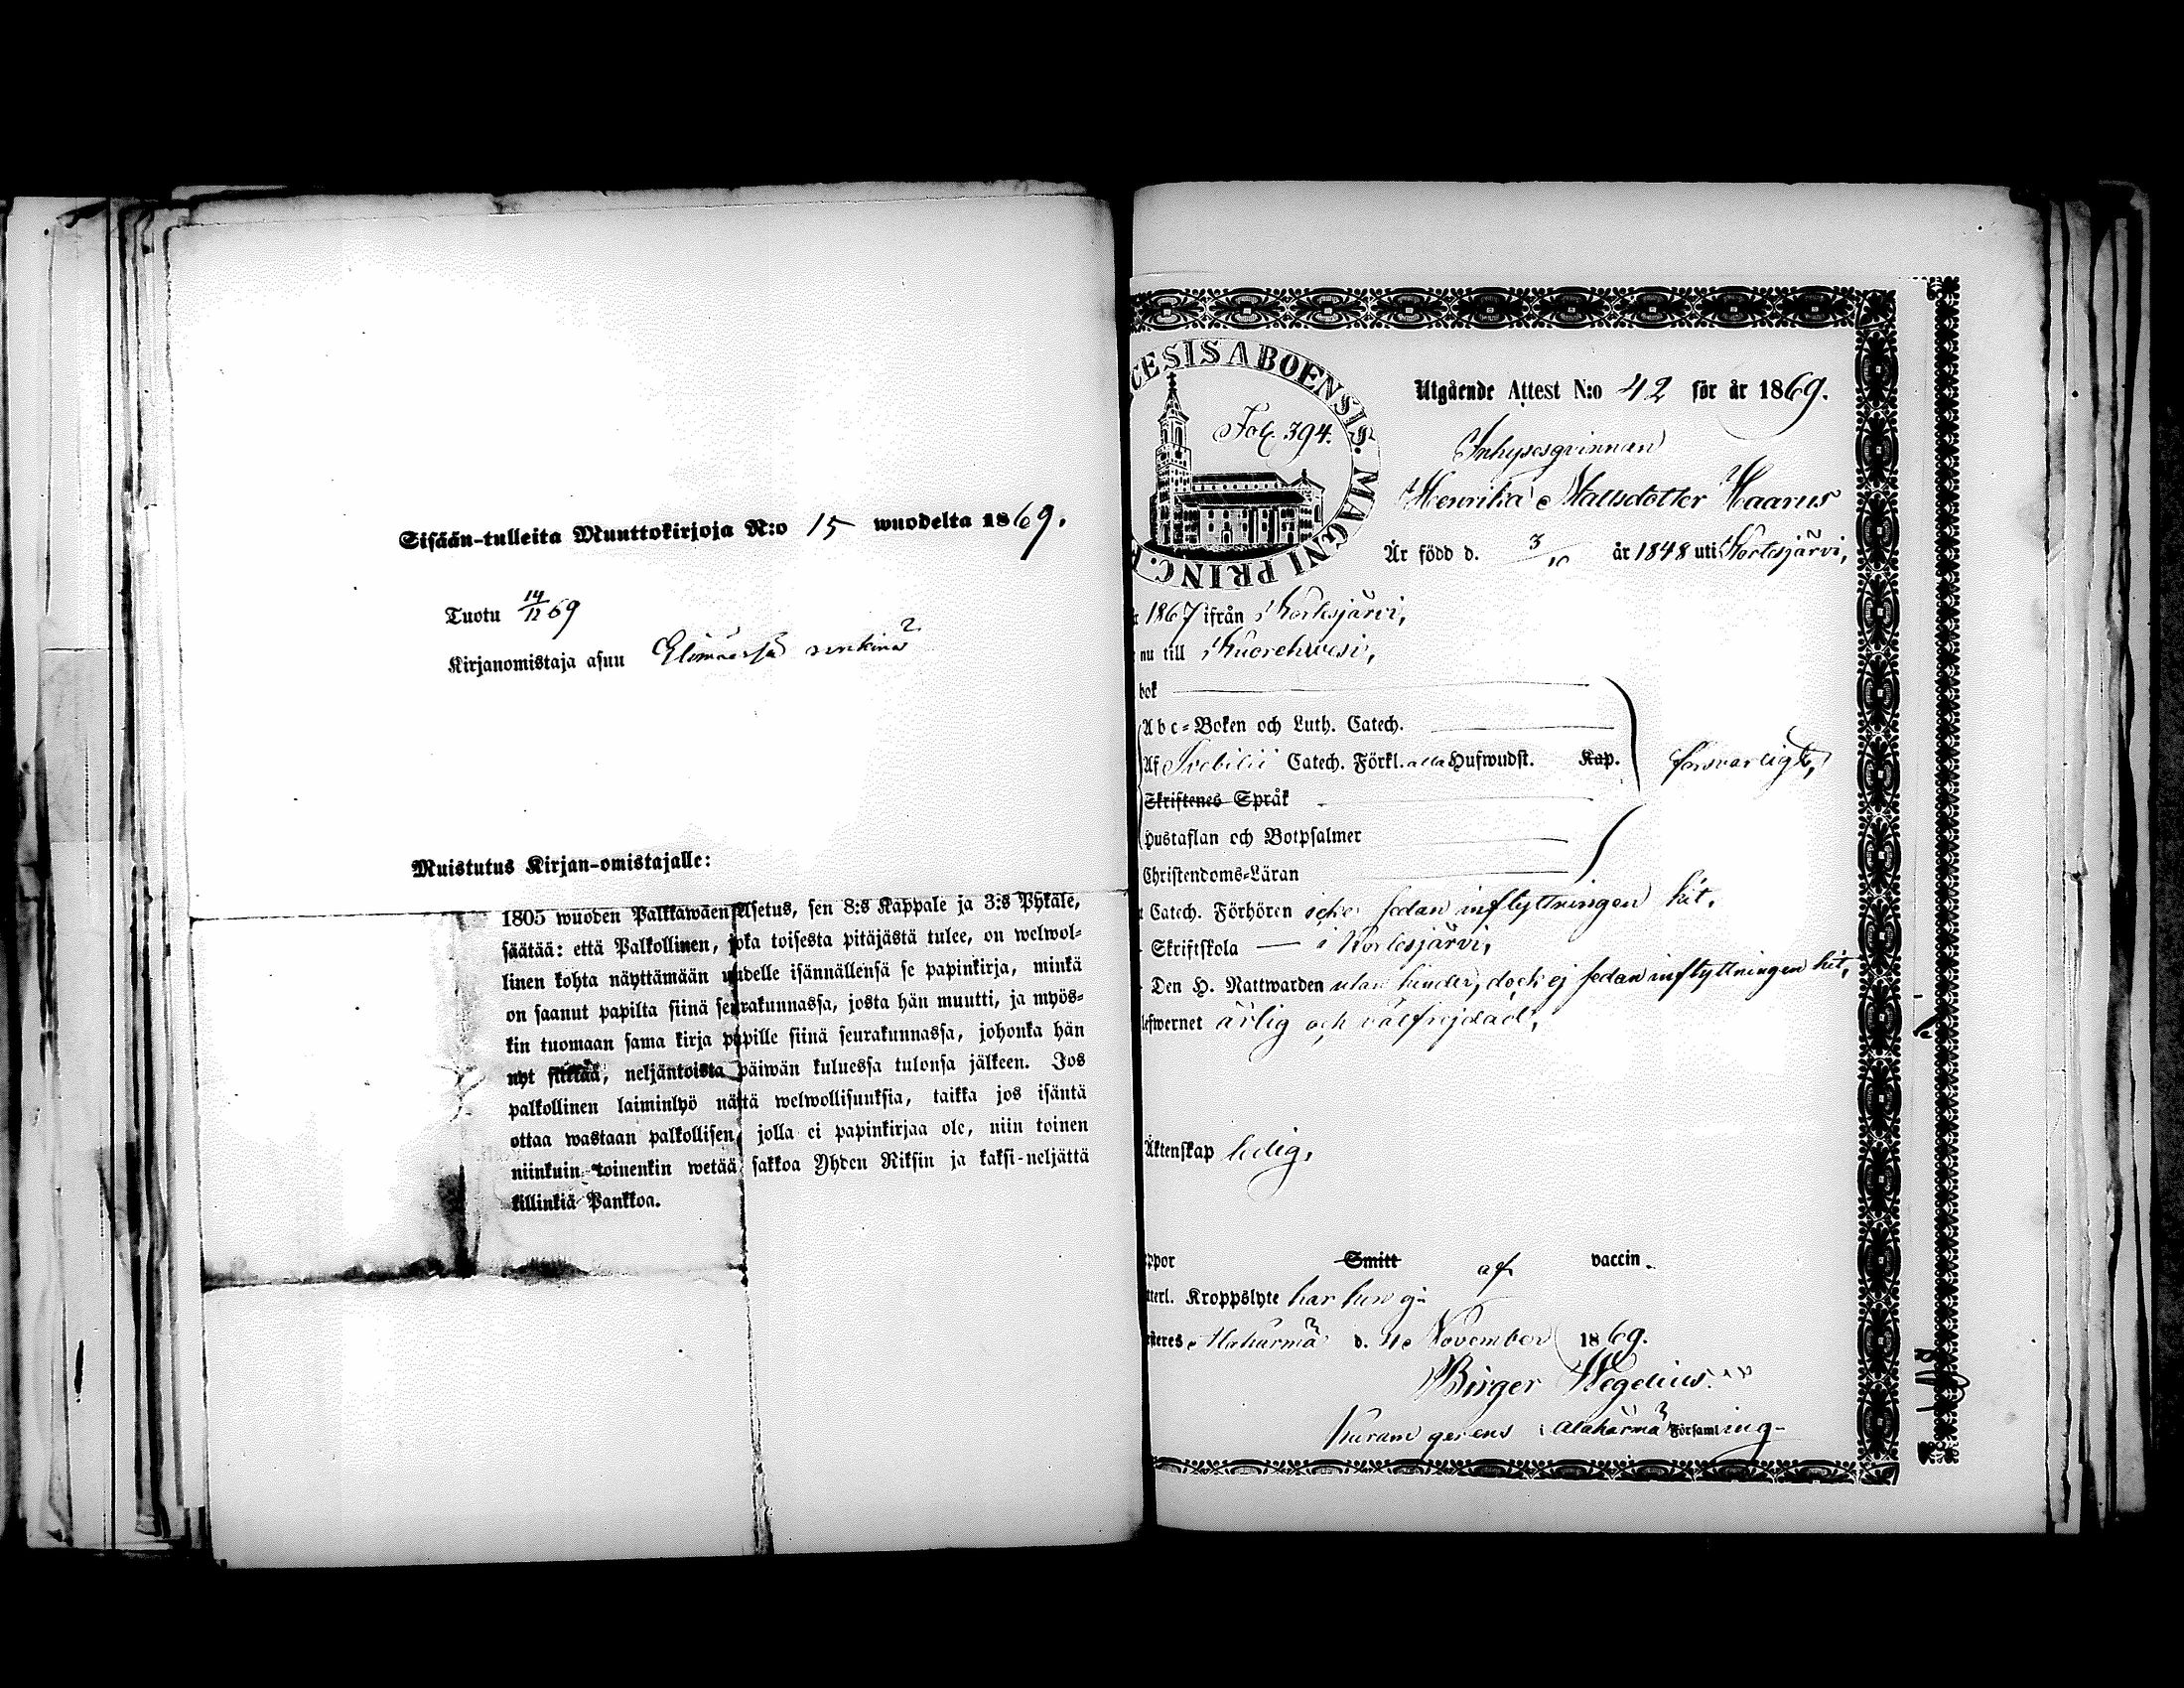 Sisään-tulleita Muuttokirjoja N:o 15 wuodelta 1869.
Tuotu 14/12 69
Kirjanomistaja asuu
Muistutus Kirjan-omistajalle:
1805 wuoden Palkkawäen Asetus, sen 8:s Kappale ja 3:s Pykäle,
säätää: että Palkollinen, joka toisesta pitäjästä tulee, on welwol-
linen kohta näyttämään uudelle isännällensä se papinkirja, minkä
on saanut papilta siinä seurakunnassa, josta hän muutti, ja myös-
kin tuomaan sama kirja papille siinä seurakunnassa, johonka hän
nyt siirtää, neljäntoista päiwän kuluessa tulonsa jälkeen. Jos
palkollinen laiminlyö näitä welwollisuuksia, taikka jos isäntä
ottaa wastaan palkollisen, jolla ei papinkirjaa ole, niin toinen
niinkuin toinenkin wetää sakkoa Yhden Riksin ja kaksi-neljättä
killinkiä Pankkoa.
CESIS ABOENSIS. MAGNI PRINC.
Fol. 394.
Utgående Attest N:o 42 för år 1869.
Inhysesqvinnan
Henrika Mattsdotter Haarus
Är född d. 3/10 år 1848 uti Kortesjärvi,
1867 ifrån Kortesjärvi,
nu till Kuorehvesi,
bok
Abc-Boken och Luth. Catech.
Af Svebilii Catech. Förkl. alla Hufwudst. Kap. försvarligt,
Skriftenes Språk
Hustaflan och Botpsalmer
Christendoms-Läran
Catech. Förhören icke sedan inflyttningen hit.
Skriftskola — i Kortesjärvi,
Den H. Nattwarden utan hinder, dock ej sedan inflyttningen hit,
lefwernet ärlig och välfrejdad,
Äktenskap ledig,
ppor Smitt af vaccin.
tterl. Kroppslyte har hon ej
Alahärmä d. 4 November 1869.
Birger Wegelius.
Kuram gerens i Alahärmä Församling